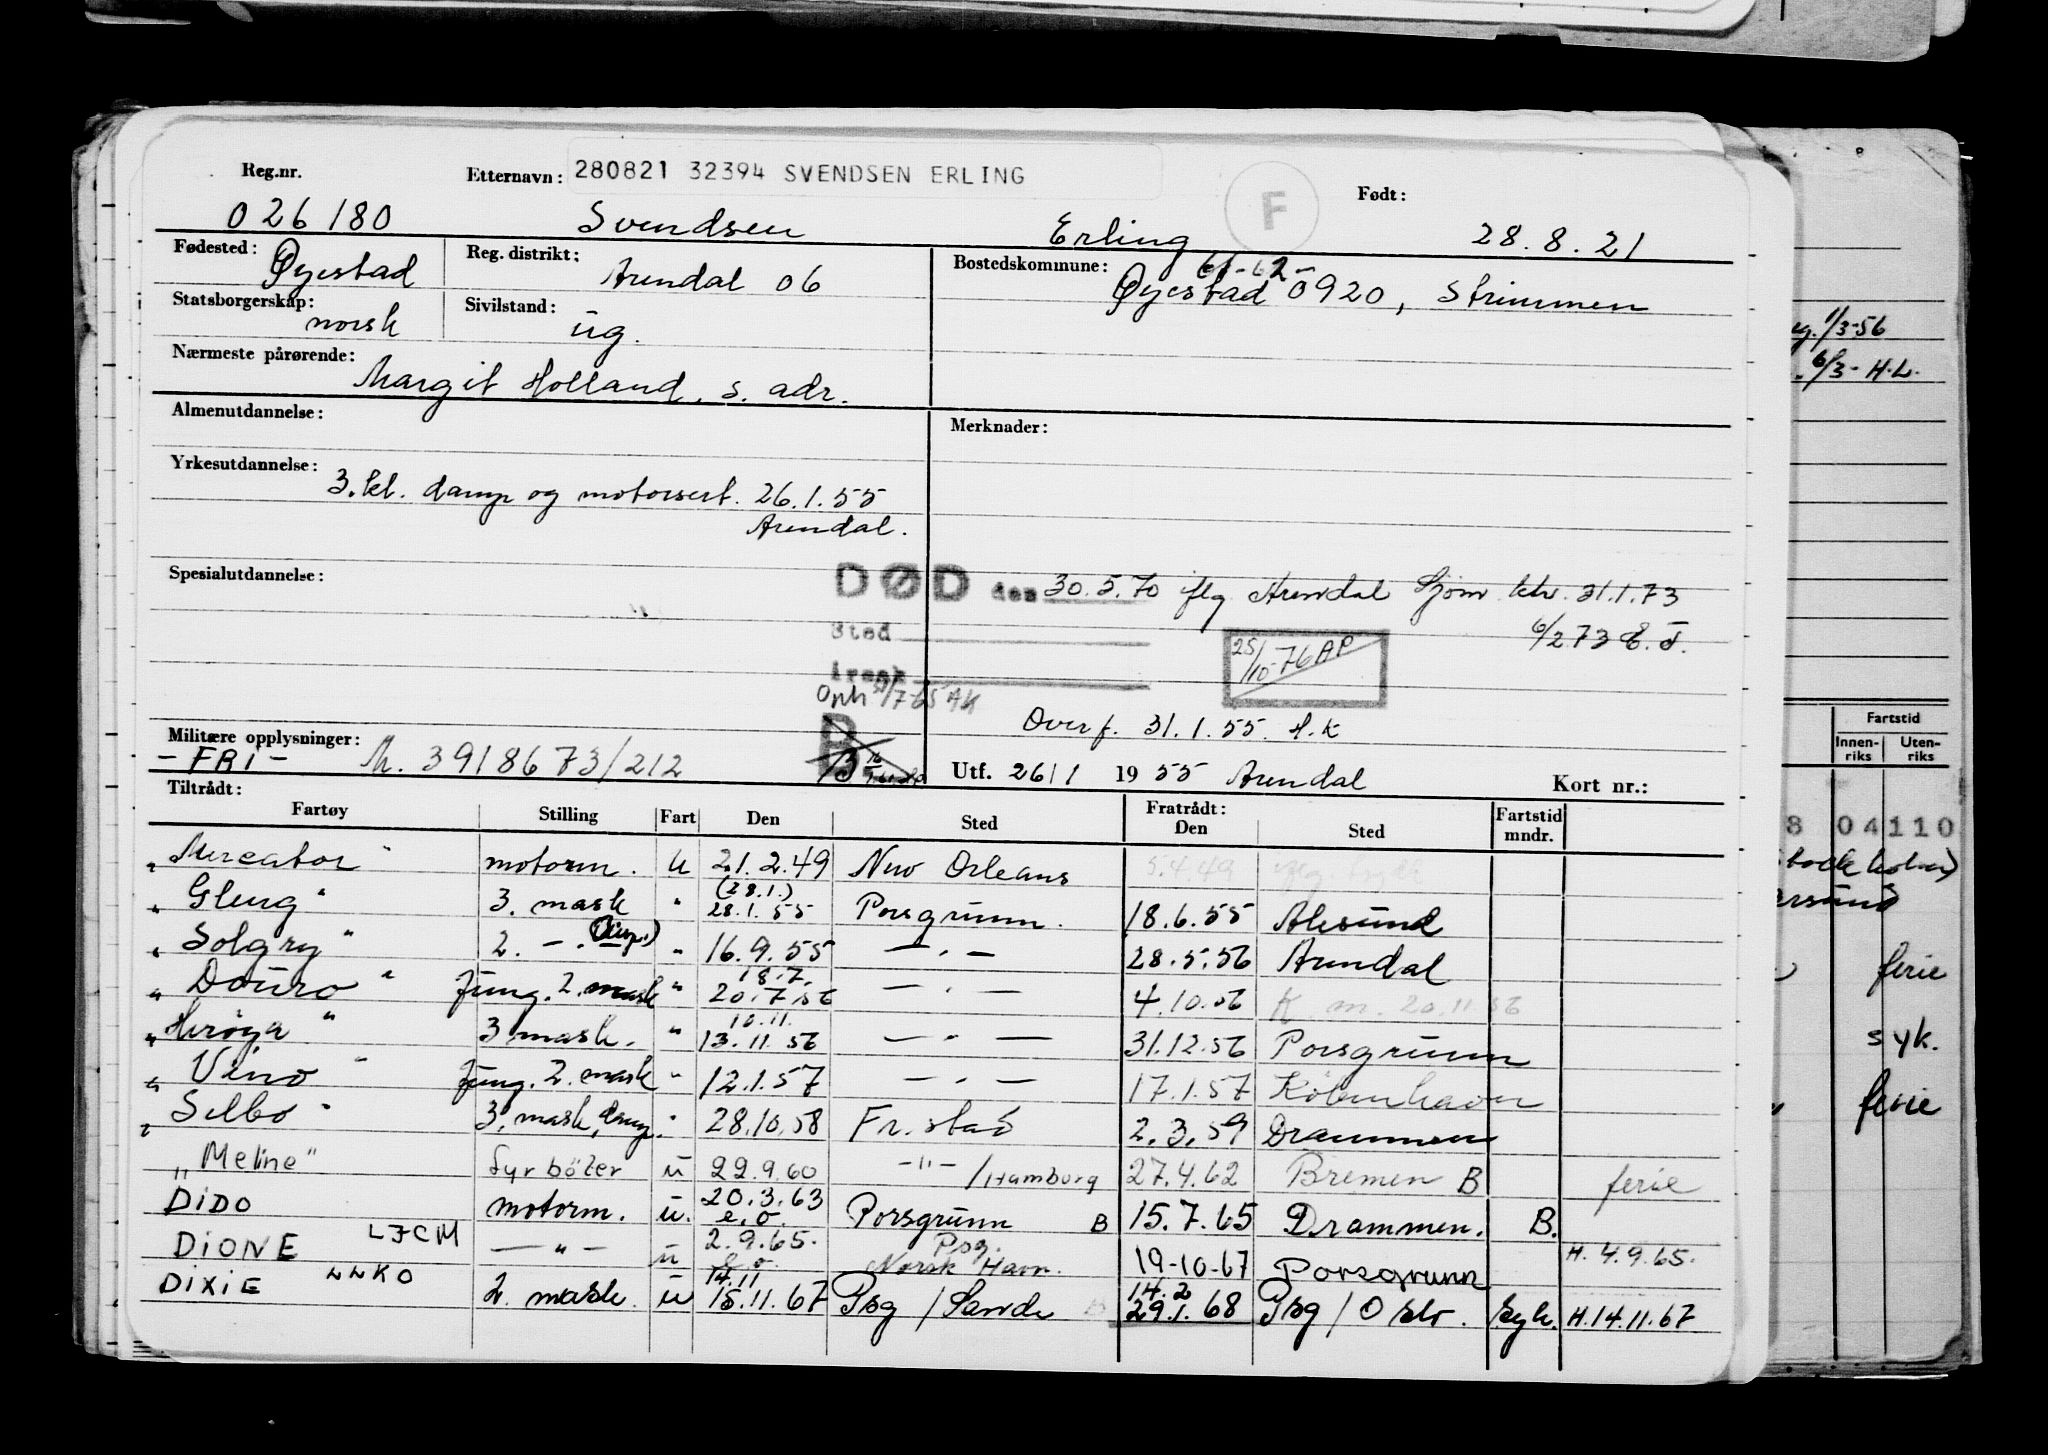 Reg.nr. Etternavn: 280821 32394 SVENDSEN ERLING F Født:
026180 Svendsen Erling 28.8.21
Fødested: Øyestad Reg. distrikt: Arendal 06 Bostedskommune: Øyestad 0920, Strømmen
Statsborgerskap: norsk Sivilstand: ug.
Nærmeste pårørende:
Margit Holland, s. adr.
Almenutdannelse: Merknader:
Yrkesutdannelse:
3. kl. damp og motorsert. 26.1.55
Arendal.
Spesialutdannelse:
DØD den 30.5.70 iflg Arendal Sjøm. ktr. 31.1.73
6/2 73 E.J.
Sted
25/10-76 AP
Årsak
Oph 9/7-65 AK
B
Overf. 31.1.55. H.K
Militære opplysninger:
-FRI- M. 3918673/212
Utf. 26/1 1955 Arendal Kort nr.:
Tiltrådt: Fratrådt:
Fartøy Stilling Fart Den Sted Den Sted Fartstid mndr.
"Mercator" motorm. U 21.2.49 New Orleans 5.4.49
(28.1.)
"Gleng" 3. mask " 28.1.55 Porsgrunn. 18.6.55 Ålesund
"Solgry" 2. - . - " 16.9.55 - . - 28.5.56 Arendal
18.7.
"Douro" Jung. 2. mask " 20.7.56 - . - 4.10.56 K. m. 20.11.56
10.11.
"Herøya" 3 mask. " 13.11.56 - " - 31.12.56 Porsgrunn
"Vino" Jung. 2. mask " 12.1.57 - . - 17.1.57 København
"Selbo" 3. mask, damp. " 28.10.58 Fr.stad 2.3.59 Drammen
"Meline" fyrbøter u 22.9.60 -"-/Hamburg 27.4.62 Bremen B ferie
DIDO motorm. u. 20.3.63 e.o. Porsgrunn B 15.7.65 Drammen. B.
DIONE LJCM - " - u 2.9.65. e.o. Psg. Norsk Havn. 19-10-67 Porsgrunn H. 4.9.65.
14.11 14.2
DIXIE LLKO 2. mask. u 15.11.67 Psg / Sande 29.1.68 Psg / Oslo. Syk. H.14.11.67
1/3-56
6/3- H.L.
Fartstid
Innen-riks Uten-riks
8 04110
ferie
syk.
ferie